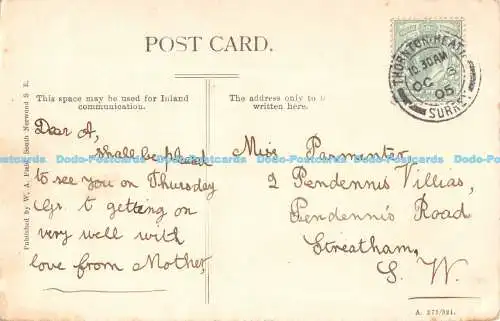 POST CARD.
THORNTON HEATH
10.30AM
OC 6
05
SURREY
This space may be used for Inland
communication.
The address only to b
written here.
Published by W. A. Field, South Norwood S E.
Dear A,
shall be pleased
to see you on Thursday
Gr. t getting on
very well with
love from Mother,
Miss Parmenter
2 Pendennis Villias,
Pendennis Road
Streatham,
S. W.
A. 273/324.
Dodo-Postcards Dodo-Postcards Dodo-Postcards Dodo-Postcards Dodo-Postcards